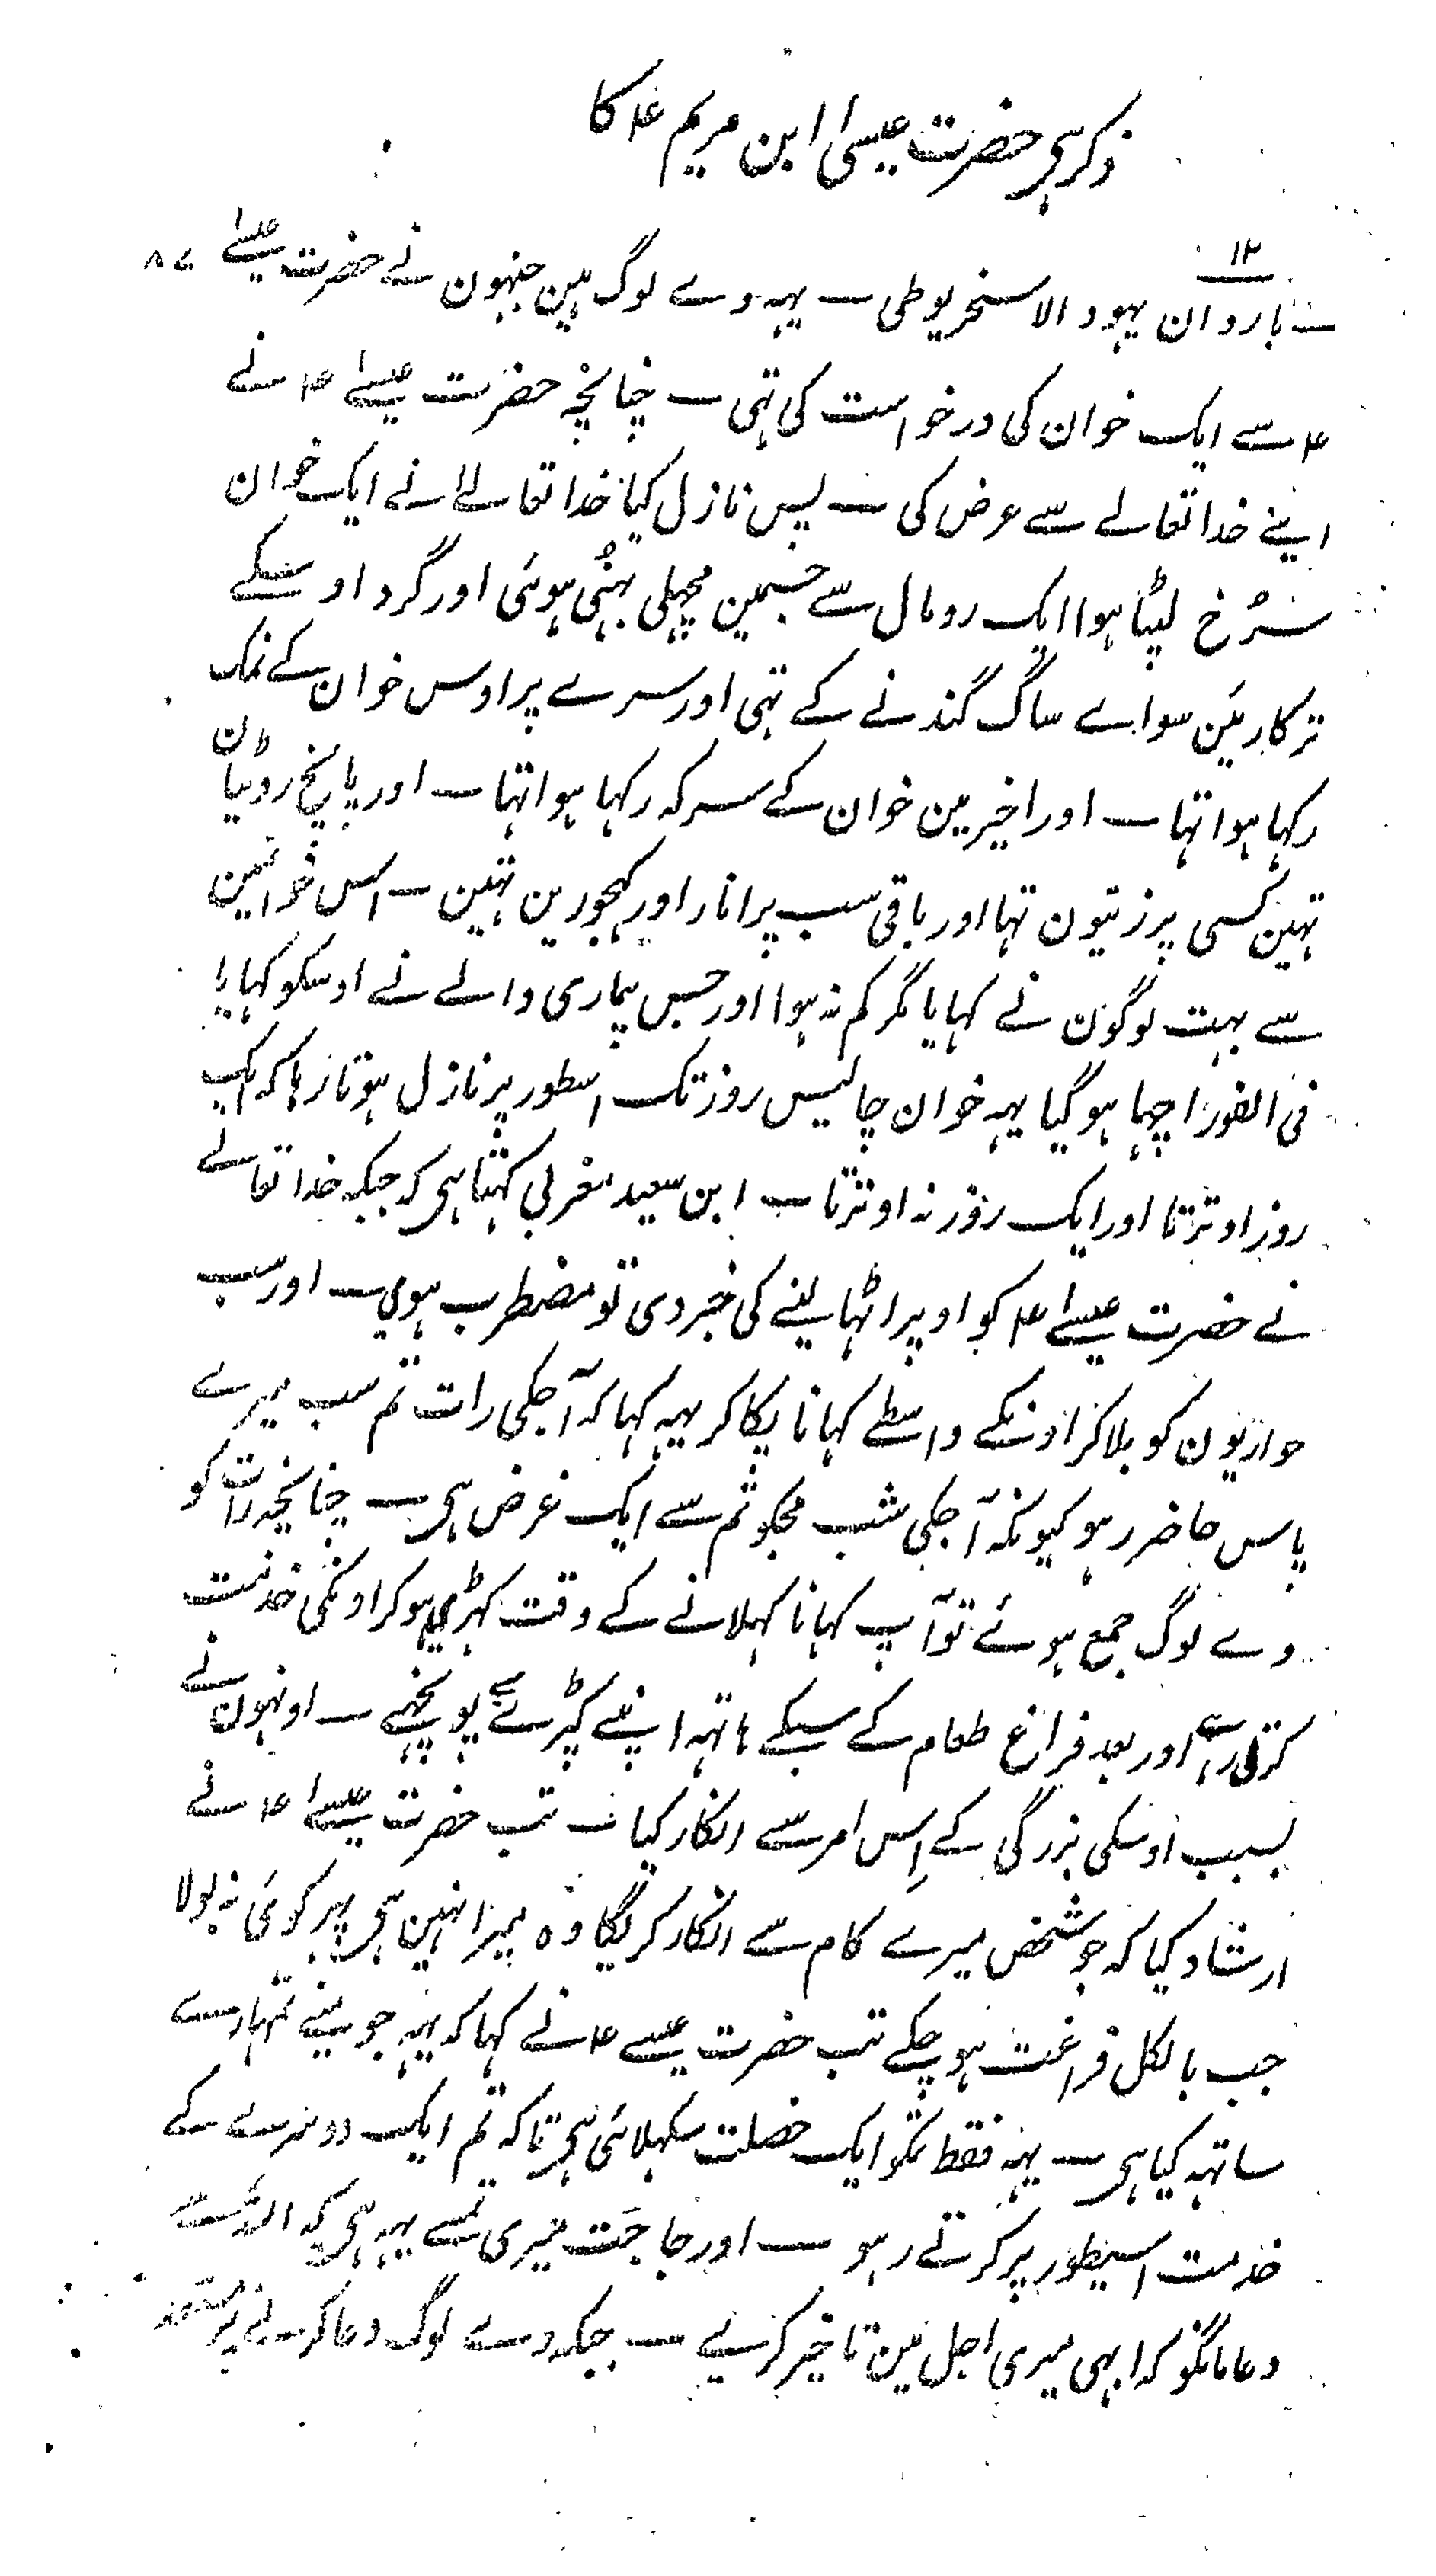 ذکر ہی حضرت عیسیٰ ابن مریم ۴ کا
۸۷
۱۲
بارواں یہود الاسخریوطی ــ یہہ وے لوگ ہین جنہون نے حضرت عیسےٰ
۴ سے ایک خوان کی درخواست کی تہی ــ چنانچہ حضرت عیسےٰ ۴ نے
اپنے خدا تعالے سے عرض کی ــ پس نازل کیا خدا تعالےٰ نے ایک خوان
سُرخ لپٹا ہوا ایک رومال سے جسمین مچہلی بہُنی ہوئی اور گرد اوسکے
ترکاریَین سواے ساگ گندنے کے تہی اور سرے پر اوس خوان کے نمک
رکہا ہوا تہا ــ اور اخیر مین خوان کے سرکہ رکہا ہوا تہا ــ اور پانچ روٹیان
تہین کسی پر زیتون تہا اور باقی سب پر انار اور کہجورین تہین ــ اس خوانمین
سے بہت لوگون نے کہایا مگر کم نہ ہوا اور جس بیماری والے نے اوسکو کہایا
فی الفور اچہا ہو گیا یہہ خوان چالیس روز تک اسطور پر نازل ہوتا رہا کہ ایک
روز اوترتا اور ایک روز نہ اوترتا ــ ابن سعید مغربی کہتا ہی کہ جبکہ خدا تعالے
نے حضرت عیسےٰ ۴ کو اوپر اٹہا لینے کی خبر دی تو مضطرب ہوے ــ اور سب
حواریون کو بلا کر اونکے واسطے کہانا پکا کر یہہ کہا کہ آجکی رات تم سب میرے
پاس حاضر رہو کیونکہ آجکی شب مجکو تم سے ایک غرض ہی ــ چنانچہ رات کو
وے لوگ جمع ہوئے تو آپ کہانا کہلانے کے وقت کہڑے ہو کر اونکی خدمت
کرتے رہے اور بعد فراغ طعام کے سبکے ہاتہہ اپنے کپڑے سے پونچہے ــ اونہون نے
بسبب اوسکی بزرگی کے اِس امر سے انکار کیا ــ تب حضرت عیسےٰ ۴ نے
ارشاد کیا کہ جو شخص میرے کام سے انکار کریگا وہ میرا نہین ہی پہر کوئی نہ بولا
جب بالکل فراغت ہو چکے تب حضرت عیسے ۴ نے کہا کہ یہہ جو مینے تمہارے
ساتہہ کیا ہی ــ یہہ فقط تمکو ایک خصلت سکہلائی ہی تا کہ تم ایک دوسرے کے
خدمت اسیطور پر کرتے رہو ــ اور حاجت میری تمسے یہہ ہی کہ اللہ سے
دعا مانگو کہ ابہی میری اجل مین تاخیر کرے ــ جبکہ وے لوگ دعا کرنے پر مستعد